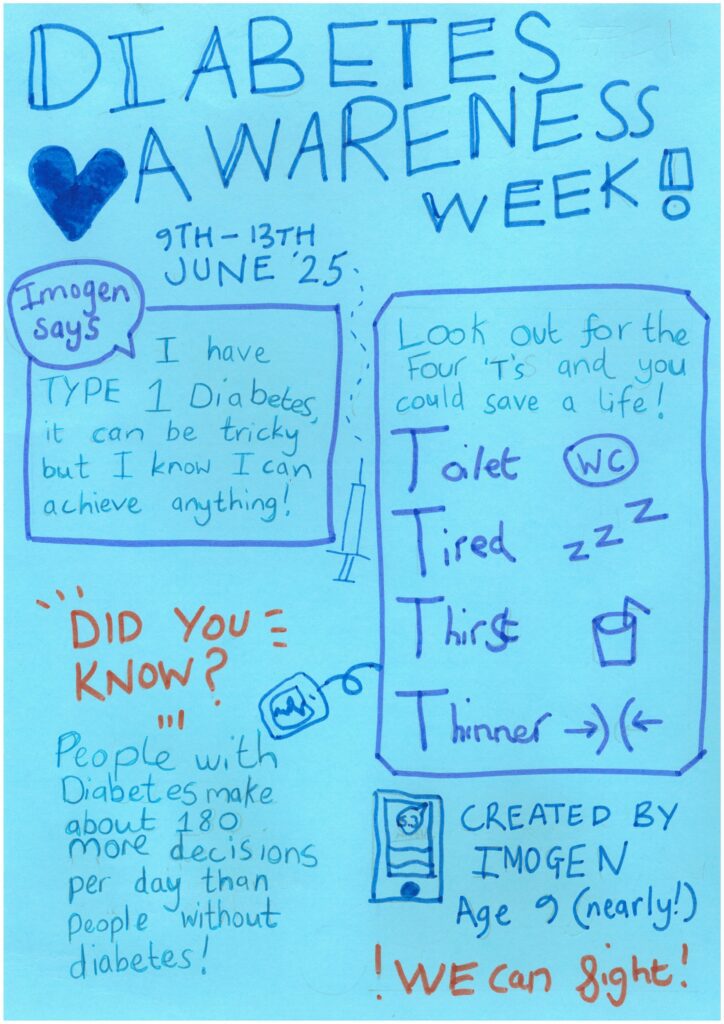 DIABETES
AWARENESS
WEEK!
9TH - 13TH
JUNE '25
Imogen
says
I have
TYPE 1 Diabetes,
it can be tricky
but I know I can
achieve anything!
Look out for the
Four 'T's and you
could save a life!
Toilet WC
Tired zzz
Thirst
Thinner
DID YOU
KNOW?
People with
Diabetes make
about 180
more decisions
per day than
people without
diabetes!
CREATED BY
IMOGEN
Age 9 (nearly!)
!WE can fight!